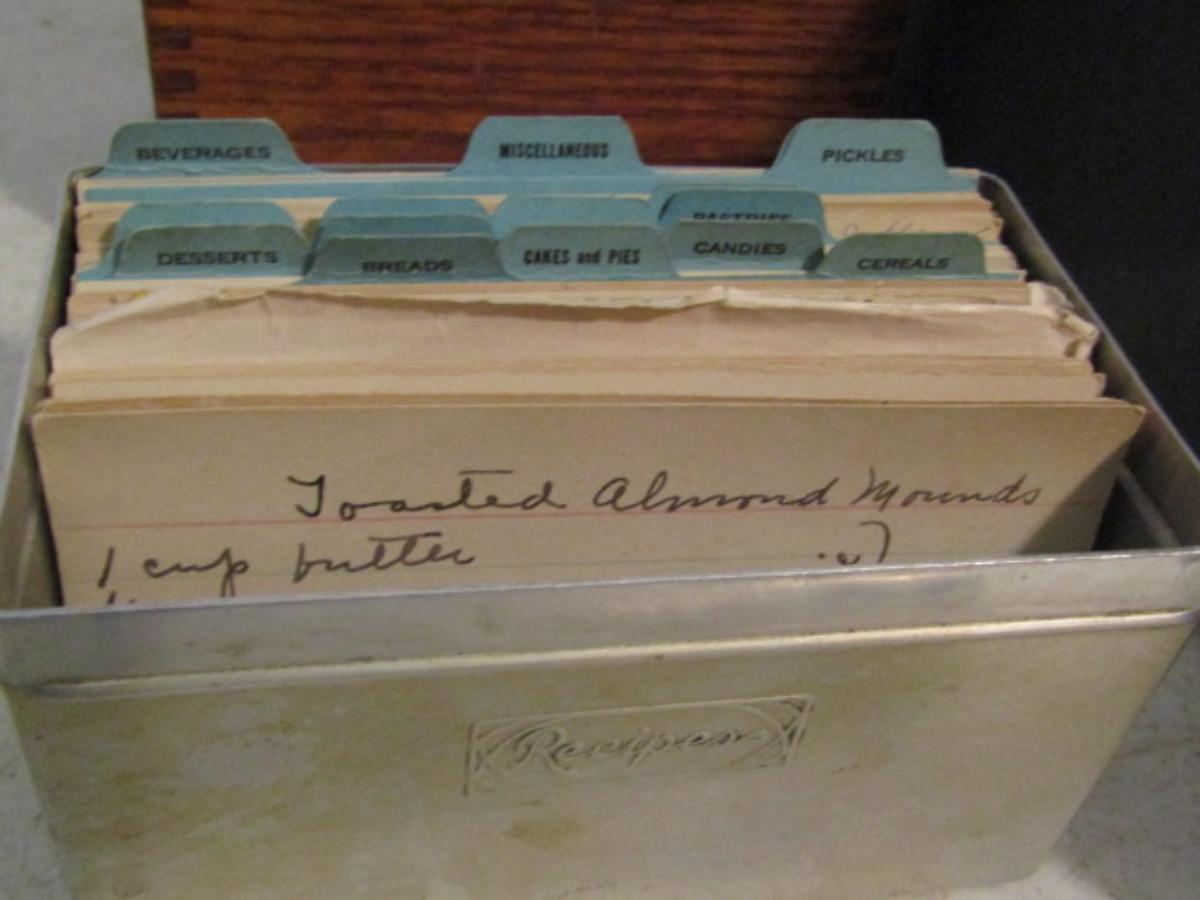 BEVERAGES
MISCELLANEOUS
PICKLES
PASTRIES
DESSERTS
BREADS
CAKES and PIES
CANDIES
CEREALS
Toasted Almond Mounds
1 cup butter
Recipes